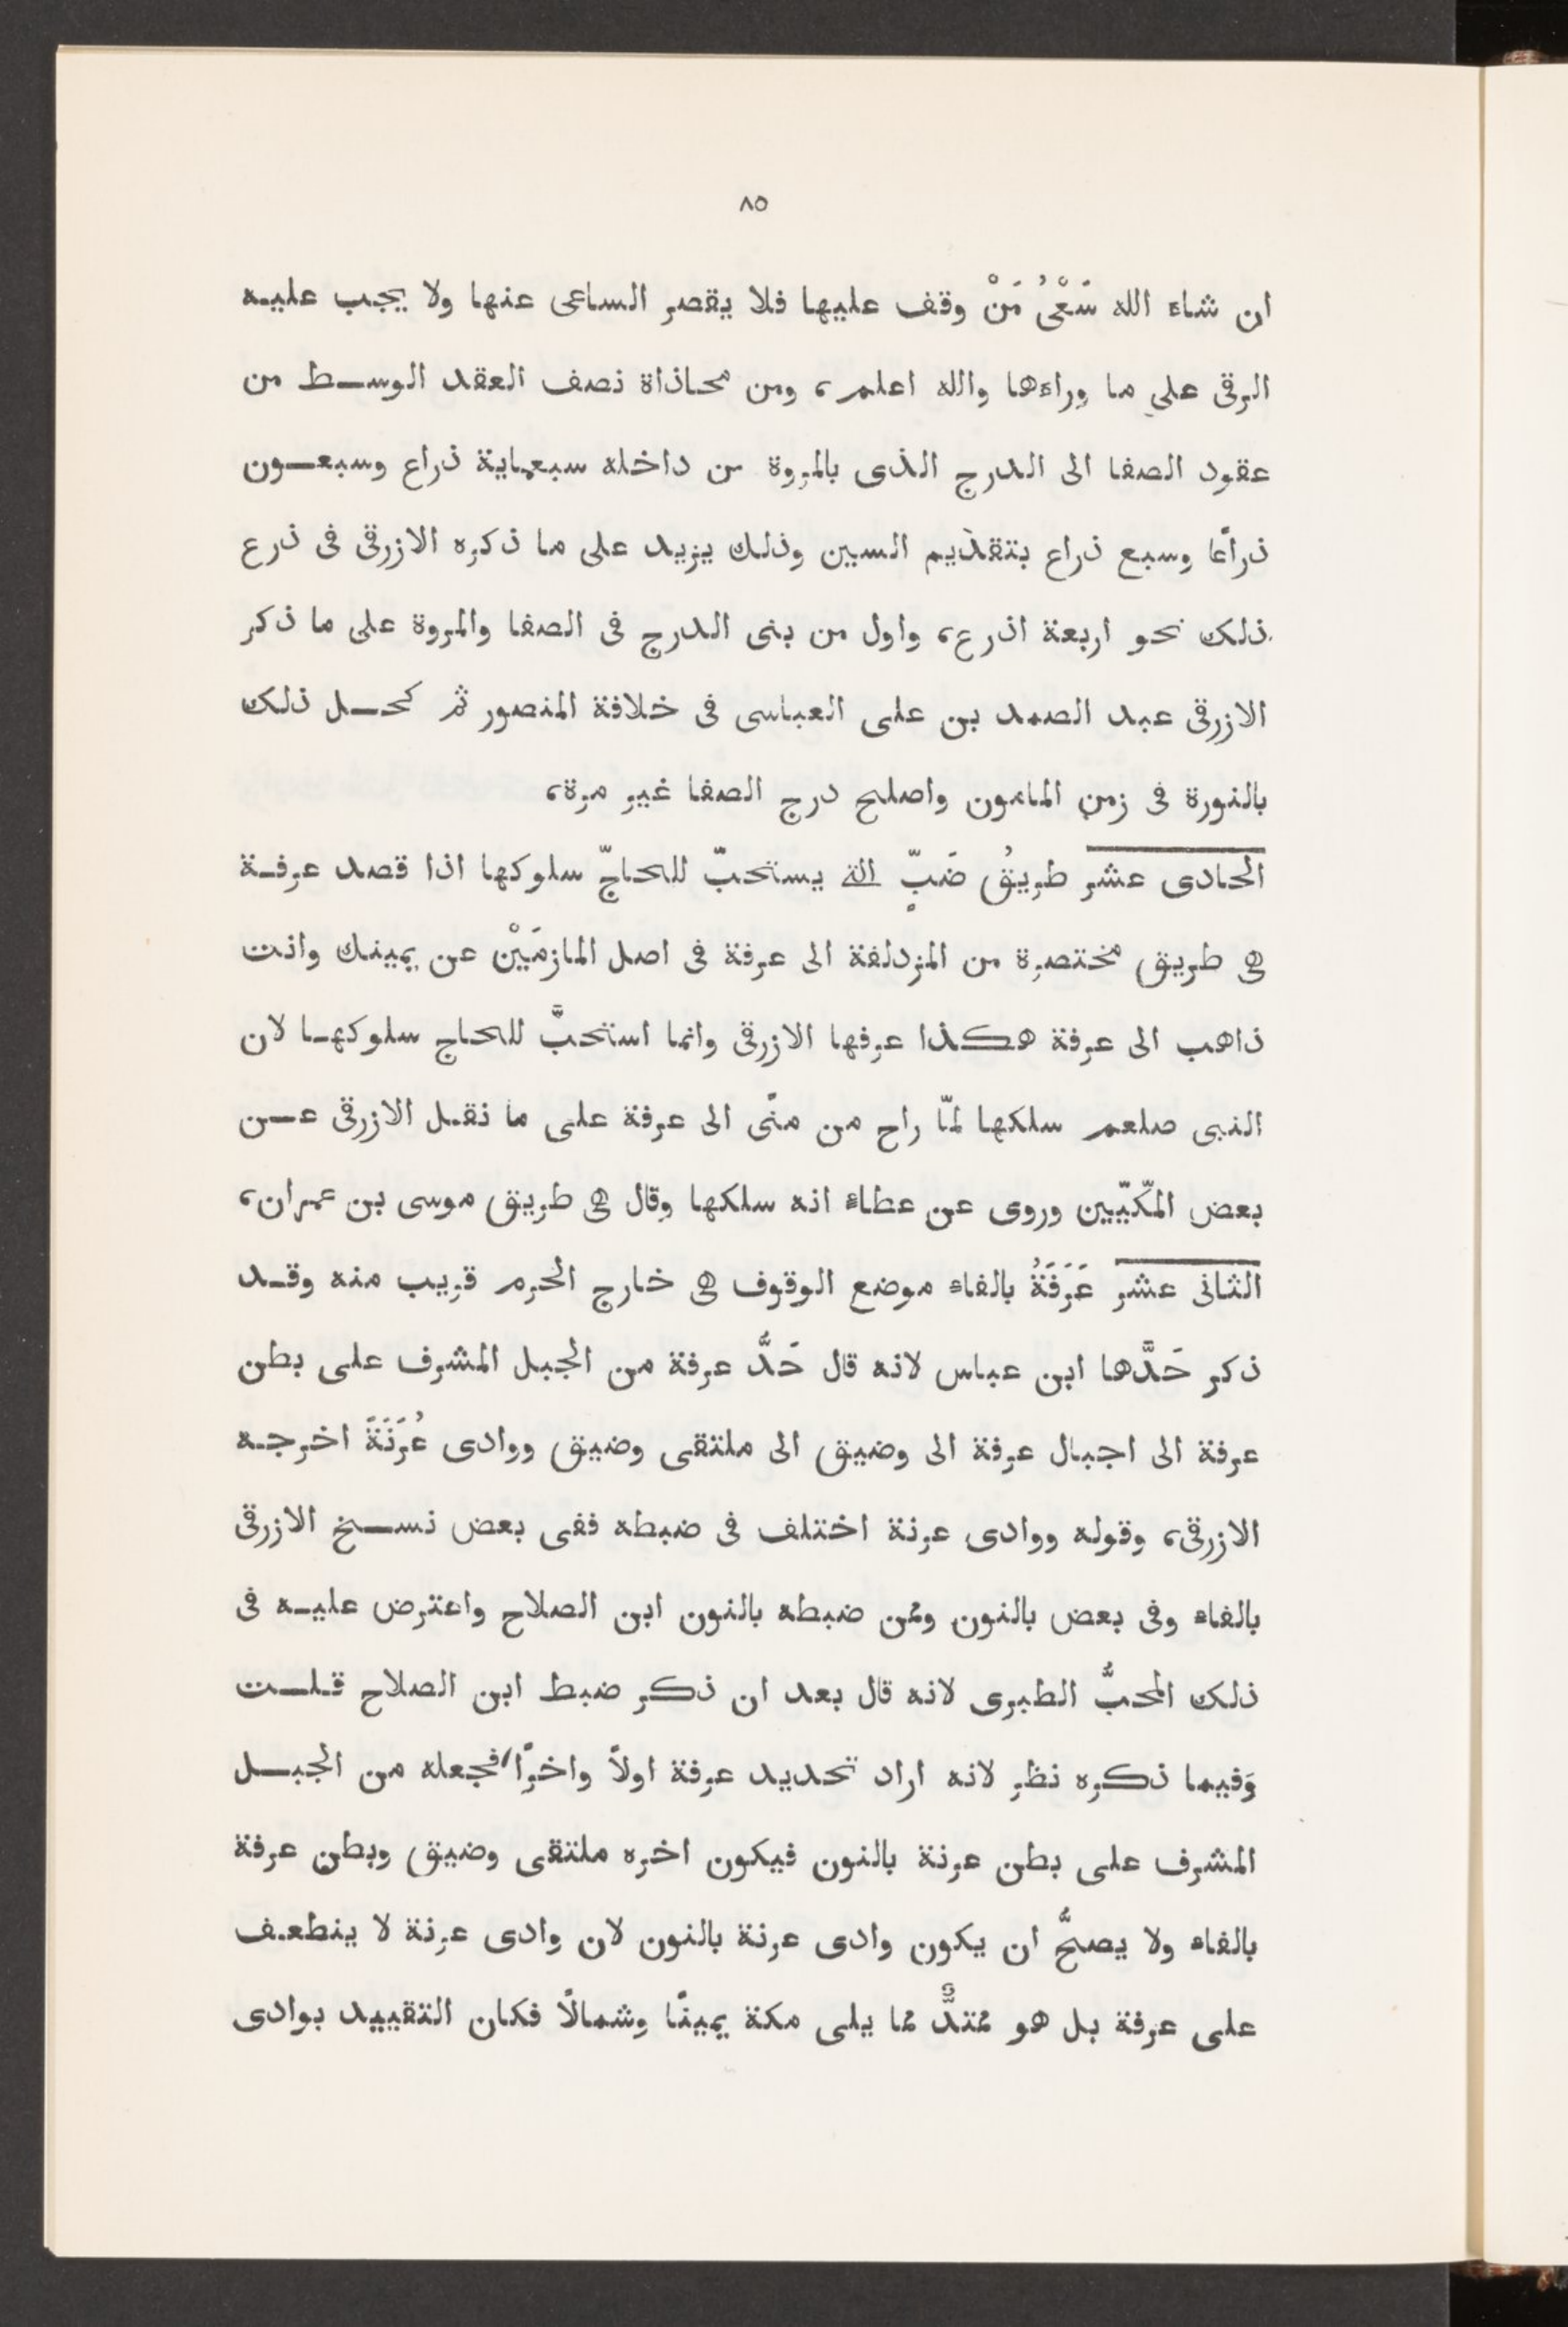 ٨٥
ان شاء الله سَعْىُ مَنْ وقف عليها فلا يقصر الساعى عنها ولا يجب عليه
الرقى على ما وراءها والله اعلم، ومن محاذاة نصف العقد الوسط من
عقود الصفا الى الدرج الذى بالمروة من داخله سبعماية ذراع وسبعون
ذراعًا وسبع ذراع بتقديم السين وذلك يزيد على ما ذكره الازرقى فى ذرع
ذلك نحو اربعة اذرع، واول من بنى الدرج فى الصفا والمروة على ما ذكر
الازرقى عبد الصمد بن على العباسى فى خلافة المنصور ثم كحل ذلك
بالنورة فى زمن المامون واصلح درج الصفا غير مرة،
الحادى عشر طريقُ ضَبٍّ التى يستحبّ للحاجّ سلوكها اذا قصد عرفة
هى طريق مختصرة من المزدلفة الى عرفة فى اصل المازمَيْن عن يمينك وانت
ذاهب الى عرفة هكذا عرفها الازرقى وانما استحبَّ للحاج سلوكها لان
النبى صلعم سلكها لمّا راح من منًى الى عرفة على ما نقل الازرقى عن
بعض المكّيّين وروى عن عطاء انه سلكها وقال هى طريق موسى بن عمران،
الثانى عشر عَرَفَةُ بالفاء موضع الوقوف هى خارج الحرم قريب منه وقد
ذكر حَدَّها ابن عباس لانه قال حَدُّ عرفة من الجبل المشرف على بطن
عرفة الى اجبال عرفة الى وضيق الى ملتقى وضيق ووادى عُرَنَةَ اخرجه
الازرقى، وقوله ووادى عرنة اختلف فى ضبطه ففى بعض نسخ الازرقى
بالفاء وفى بعض بالنون وممن ضبطه بالنون ابن الصلاح واعترض عليه فى
ذلك المحبُّ الطبرى لانه قال بعد ان ذكر ضبط ابن الصلاح قلت
وَفيما ذكره نظر لانه اراد تحديد عرفة اولاً واخرًا فجعله من الجبل
المشرف على بطن عرنة بالنون فيكون اخره ملتقى وضيق وبطن عرفة
بالفاء ولا يصحُّ ان يكون وادى عرنة بالنون لان وادى عرنة لا ينطعف
على عرفة بل هو ممتدٌّ مما يلى مكة يمينًا وشمالًا فكان التقييد بوادى